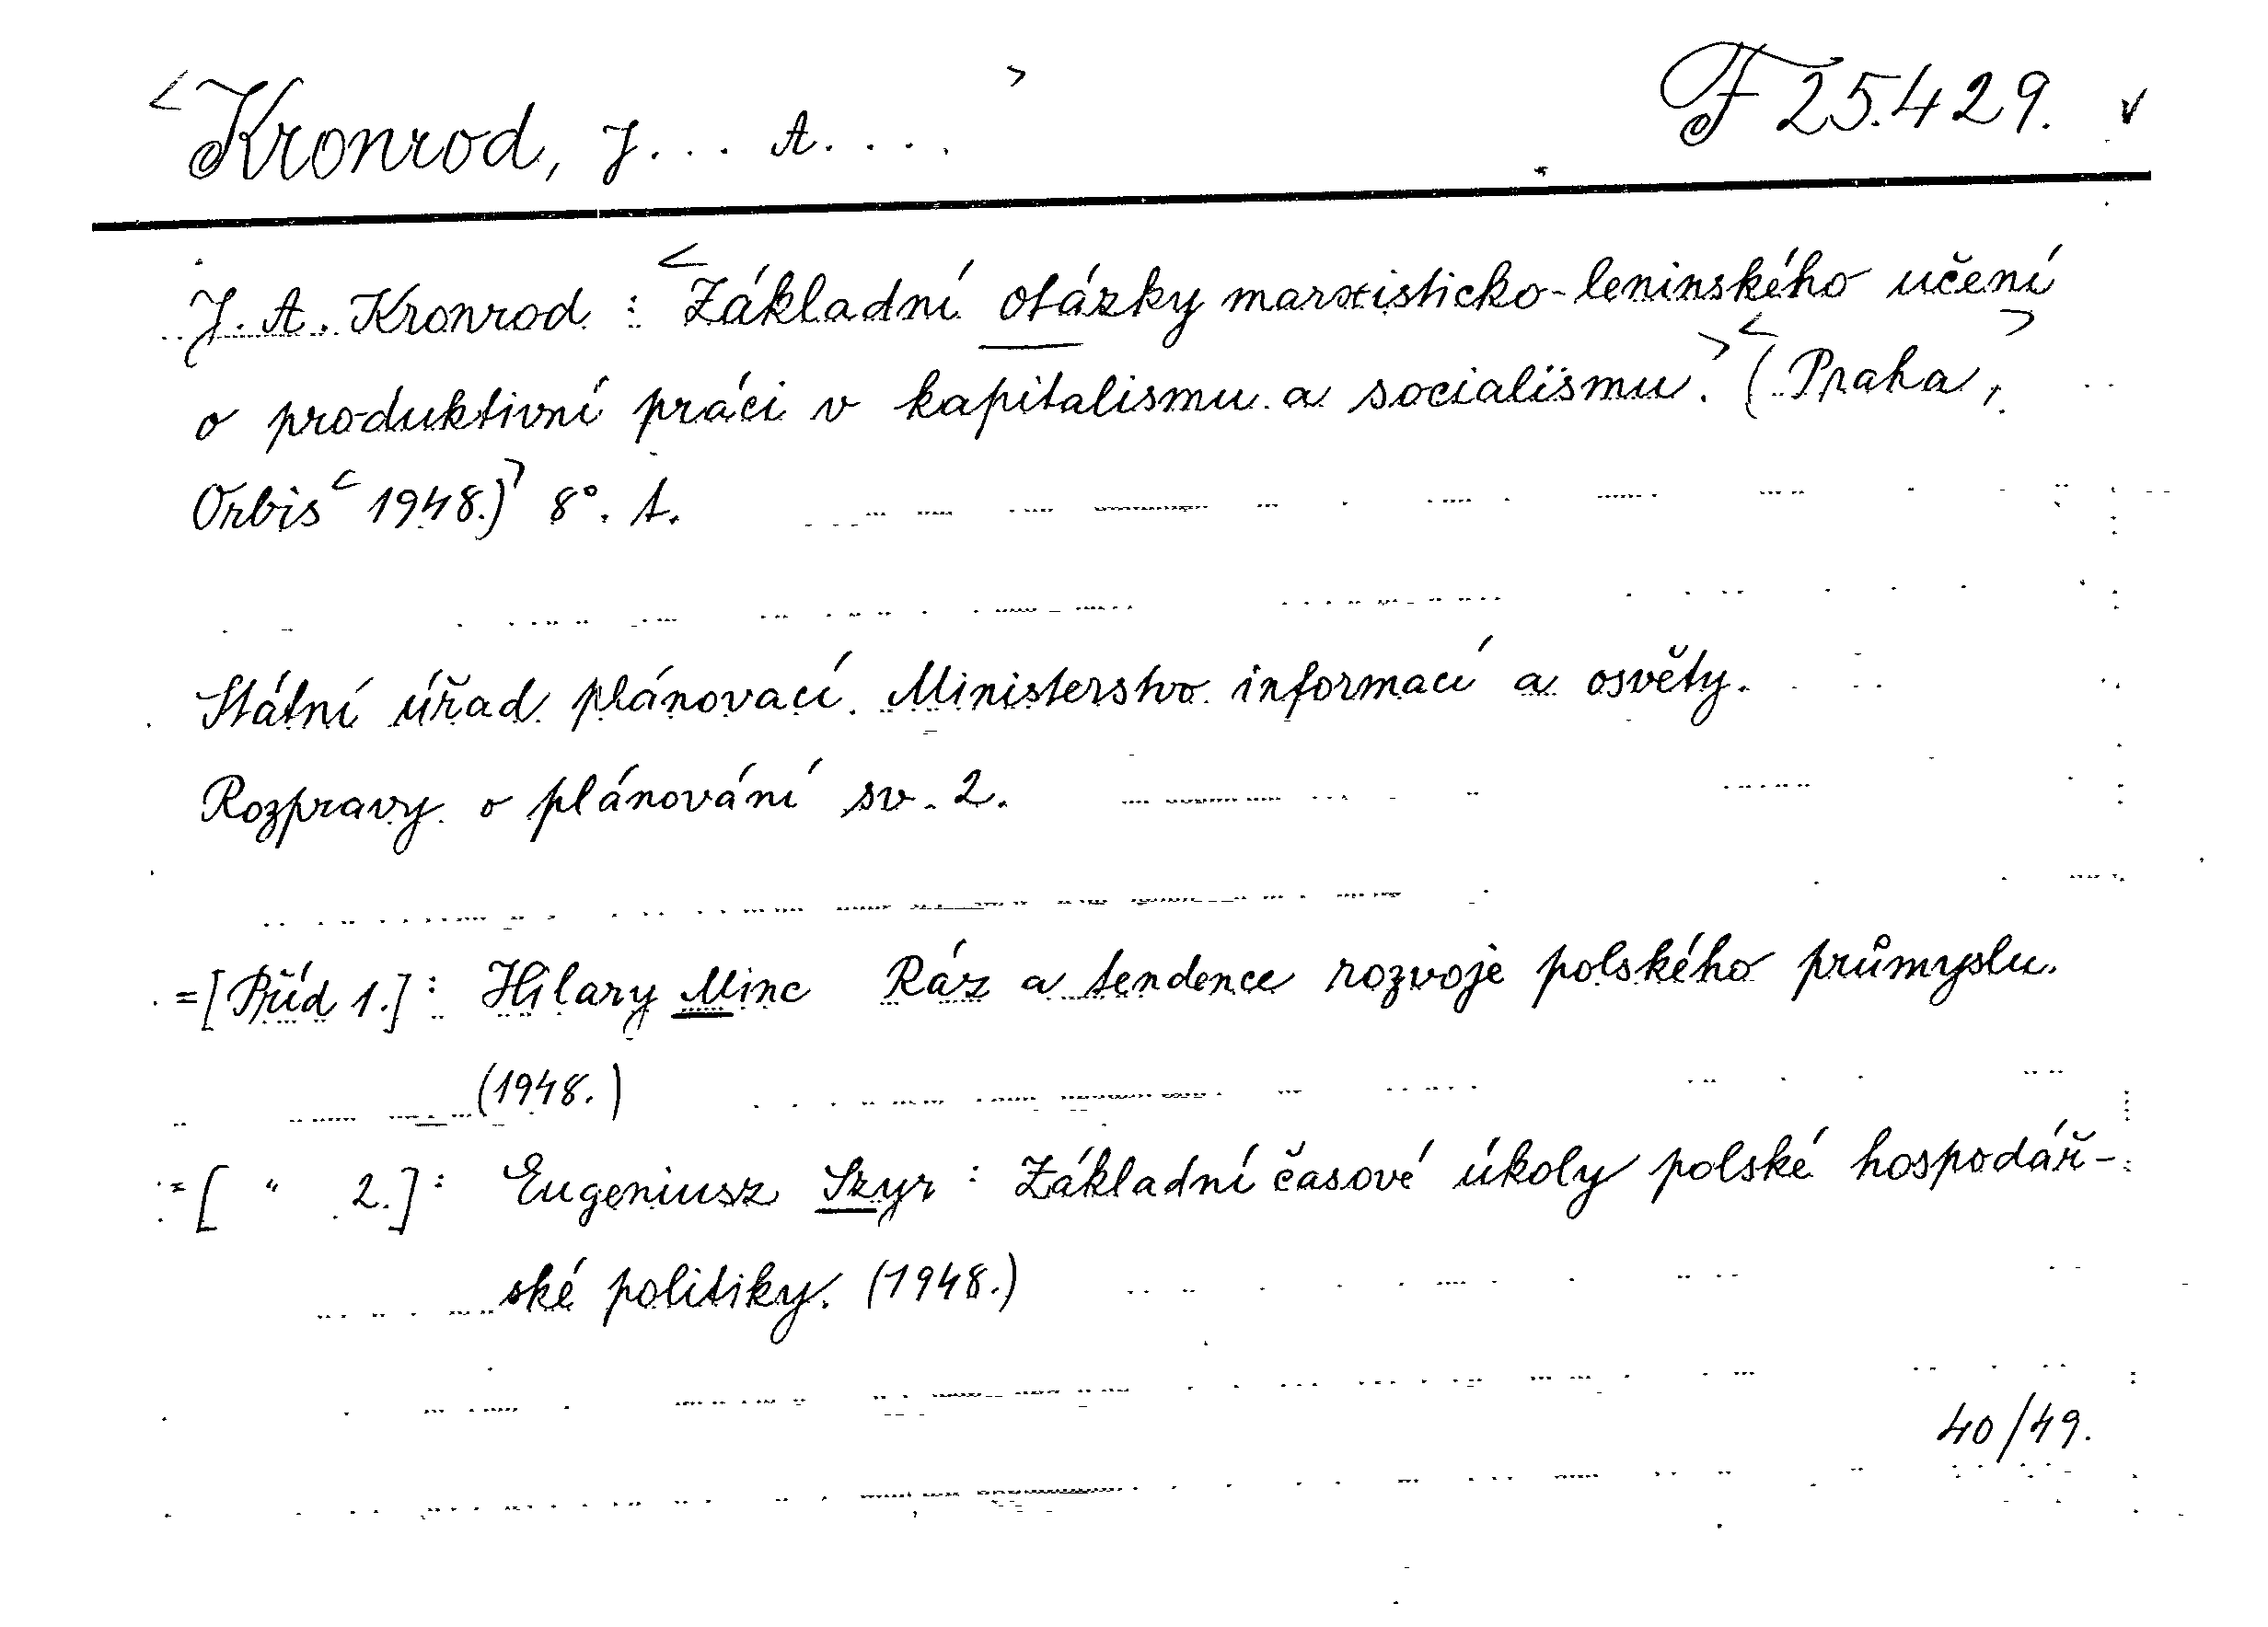 <Kronrod, J... A....> F 25.429. v
J. A. Kronrod : <Základní otázky marxisticko-leninského učení
o produktivní práci v kapitalismu a socialismu.> <(Praha,>
Orbis < 1948.)> 8°. A.
Státní úřad plánovací. Ministerstvo informací a osvěty.
Rozpravy o plánování sv. 2.
=[Příd 1.] : Hilary Minc Ráz a tendence rozvoje polského průmyslu.
(1948.)
=[ " 2.] : Eugeniusz Szyr : Základní časové úkoly polské hospodář-
ské politiky. (1948.)
40/49.